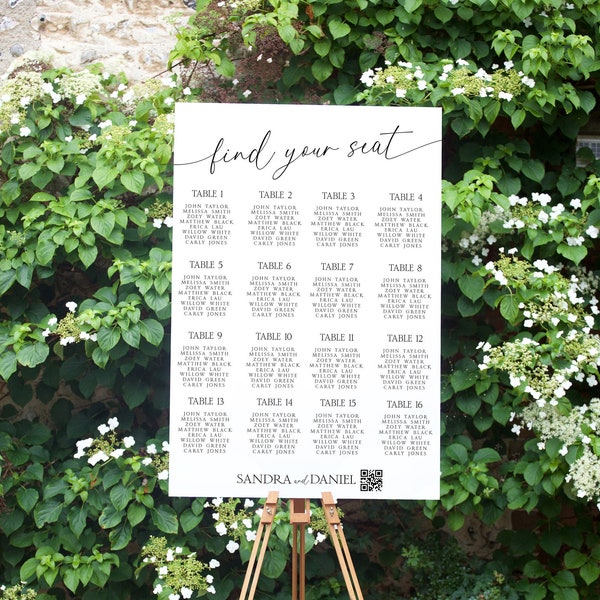 find your seat
TABLE 1
JOHN TAYLOR
MELISSA SMITH
ZOEY WATER
MATTHEW BLACK
ERICA LAU
WILLOW WHITE
DAVID GREEN
CARLY JONES
TABLE 2
JOHN TAYLOR
MELISSA SMITH
ZOEY WATER
MATTHEW BLACK
ERICA LAU
WILLOW WHITE
DAVID GREEN
CARLY JONES
TABLE 3
JOHN TAYLOR
MELISSA SMITH
ZOEY WATER
MATTHEW BLACK
ERICA LAU
WILLOW WHITE
DAVID GREEN
CARLY JONES
TABLE 4
JOHN TAYLOR
MELISSA SMITH
ZOEY WATER
MATTHEW BLACK
ERICA LAU
WILLOW WHITE
DAVID GREEN
CARLY JONES
TABLE 5
JOHN TAYLOR
MELISSA SMITH
ZOEY WATER
MATTHEW BLACK
ERICA LAU
WILLOW WHITE
DAVID GREEN
CARLY JONES
TABLE 6
JOHN TAYLOR
MELISSA SMITH
ZOEY WATER
MATTHEW BLACK
ERICA LAU
WILLOW WHITE
DAVID GREEN
CARLY JONES
TABLE 7
JOHN TAYLOR
MELISSA SMITH
ZOEY WATER
MATTHEW BLACK
ERICA LAU
WILLOW WHITE
DAVID GREEN
CARLY JONES
TABLE 8
JOHN TAYLOR
MELISSA SMITH
ZOEY WATER
MATTHEW BLACK
ERICA LAU
WILLOW WHITE
DAVID GREEN
CARLY JONES
TABLE 9
JOHN TAYLOR
MELISSA SMITH
ZOEY WATER
MATTHEW BLACK
ERICA LAU
WILLOW WHITE
DAVID GREEN
CARLY JONES
TABLE 10
JOHN TAYLOR
MELISSA SMITH
ZOEY WATER
MATTHEW BLACK
ERICA LAU
WILLOW WHITE
DAVID GREEN
CARLY JONES
TABLE 11
JOHN TAYLOR
MELISSA SMITH
ZOEY WATER
MATTHEW BLACK
ERICA LAU
WILLOW WHITE
DAVID GREEN
CARLY JONES
TABLE 12
JOHN TAYLOR
MELISSA SMITH
ZOEY WATER
MATTHEW BLACK
ERICA LAU
WILLOW WHITE
DAVID GREEN
CARLY JONES
TABLE 13
JOHN TAYLOR
MELISSA SMITH
ZOEY WATER
MATTHEW BLACK
ERICA LAU
WILLOW WHITE
DAVID GREEN
CARLY JONES
TABLE 14
JOHN TAYLOR
MELISSA SMITH
ZOEY WATER
MATTHEW BLACK
ERICA LAU
WILLOW WHITE
DAVID GREEN
CARLY JONES
TABLE 15
JOHN TAYLOR
MELISSA SMITH
ZOEY WATER
MATTHEW BLACK
ERICA LAU
WILLOW WHITE
DAVID GREEN
CARLY JONES
TABLE 16
JOHN TAYLOR
MELISSA SMITH
ZOEY WATER
MATTHEW BLACK
ERICA LAU
WILLOW WHITE
DAVID GREEN
CARLY JONES
SANDRA and DANIEL